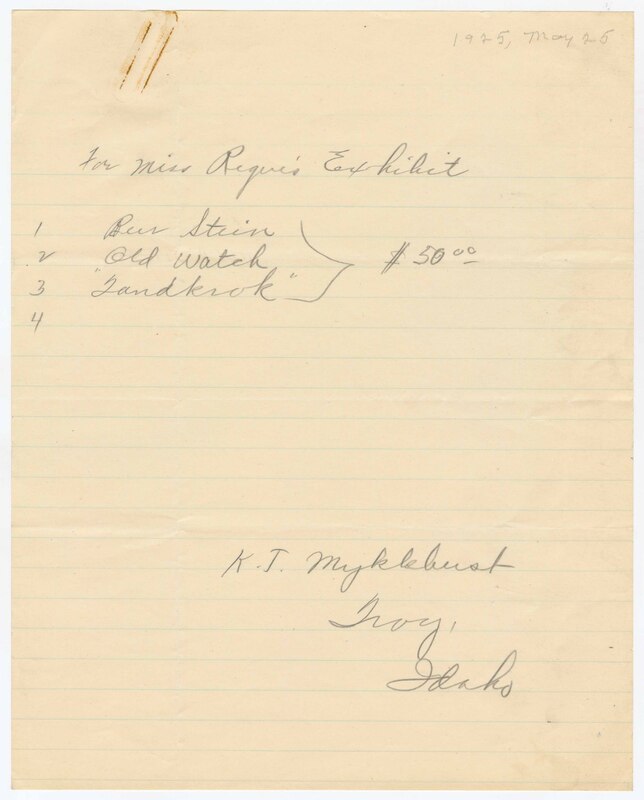 1925, May 25
For Miss Reque's Exhibit
1 Beer Stein
2 Old Watch
3 "Tandkrok"
$50.00
4
K. T. Myklebust
Troy,
Idaho